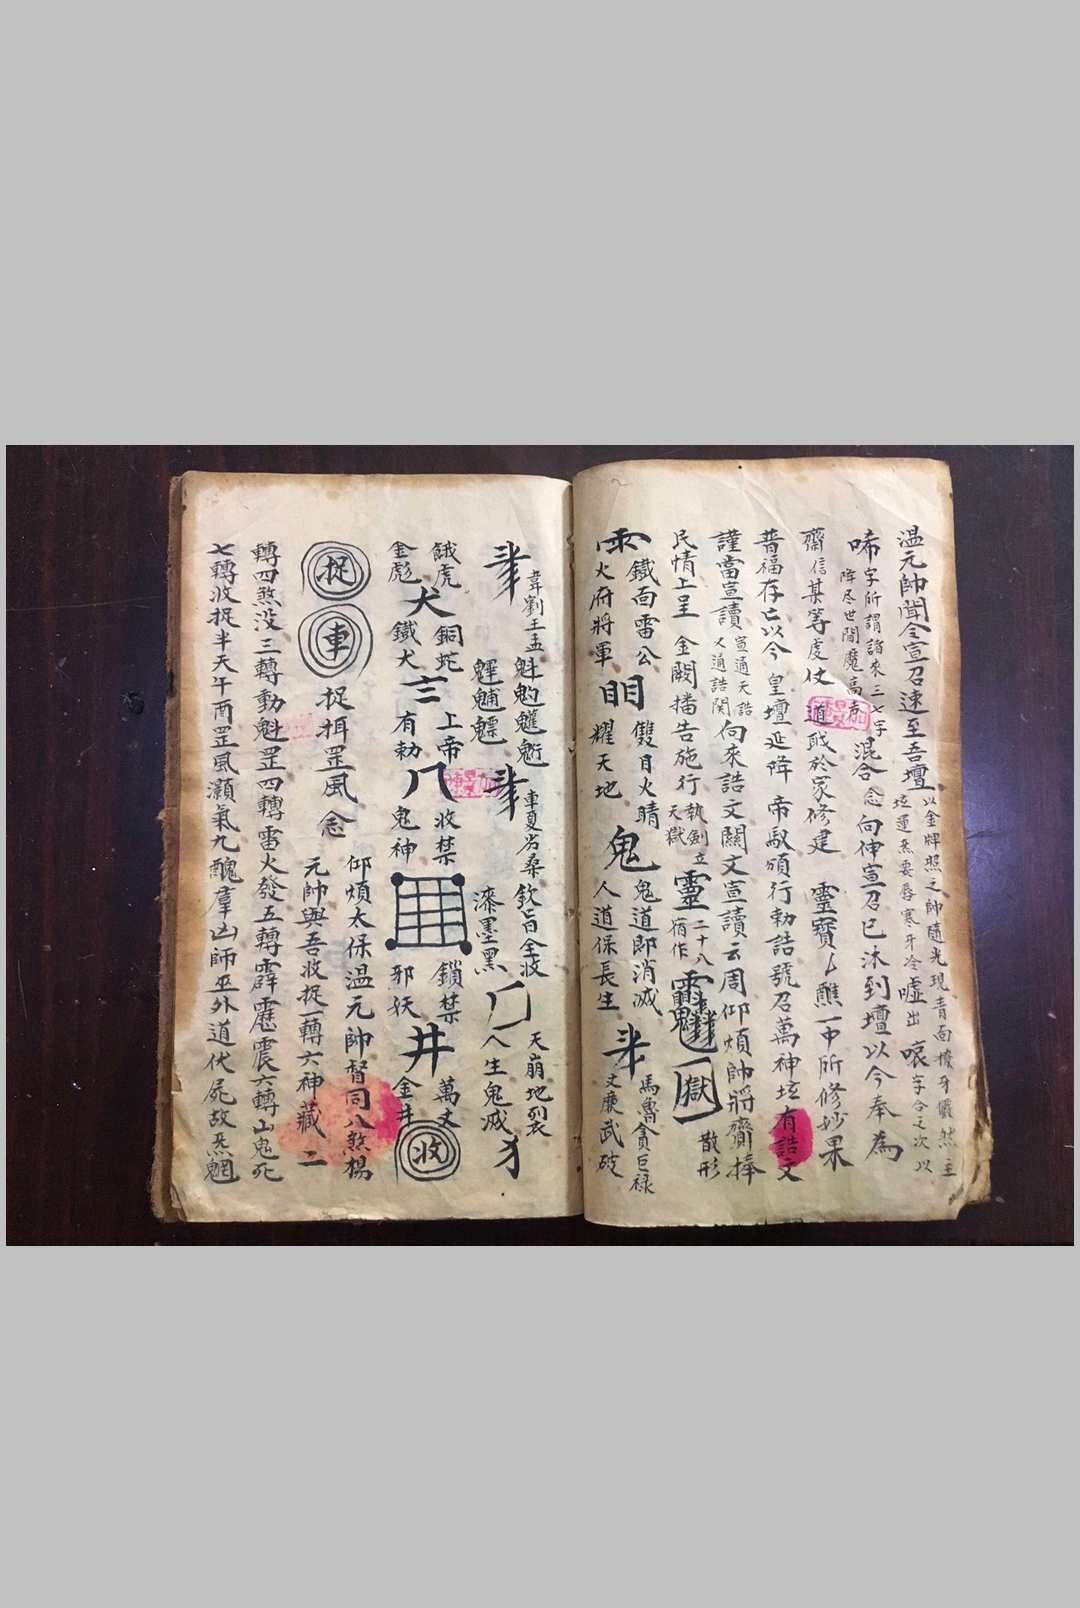 温元帥聞令宣召速至吾壇
以金牌照之帥隨光現青面獠牙儼然主
壇運炁要唇寒牙冷噓出
哀字合之次以
唏字所謂諸來三七字
降尽世間魔高声
混合念向伸宣召已沐到壇以今奉為
齋信某等虔仗
道眂於家修建
靈寶醮一中所修妙果
普福存亡以今
皇壇延降
帝馭頒行勅誥號召萬神壇有誥文
謹當宣讀
宣通天誥
又通誥関
向來誥文關文宣讀云周仰煩帥將齎捧
民情上呈
金闕播告施行
執劍
天獄
立
靈
二十八
宿作
獄
散形
雨
鐵面雷公
火府將軍
明
雙目火睛
耀天地
鬼
鬼道即消滅
人道保長生
馬魯貪巨禄
文廉武破
韋劉王孟
魁魓
車夏劣桑
欽旨全收
漆墨黑
天崩地裂
人生鬼滅
餓虎
金彪
犬
銅蛇
鐵犬
三
上帝
有勅
八
收禁
鬼神
鎖禁
邪妖
井
萬丈
金井
收
捉
車
捉揖罡風念
仰煩太保温元帥督同八煞楊
元帥與吾收捉一轉六神藏二
轉四煞没三轉動魁罡四轉雷火發五轉霹靂震六轉山鬼死
七轉收捉半天午酉罡風灝氣九醜羣凶師巫外道伏屍故炁